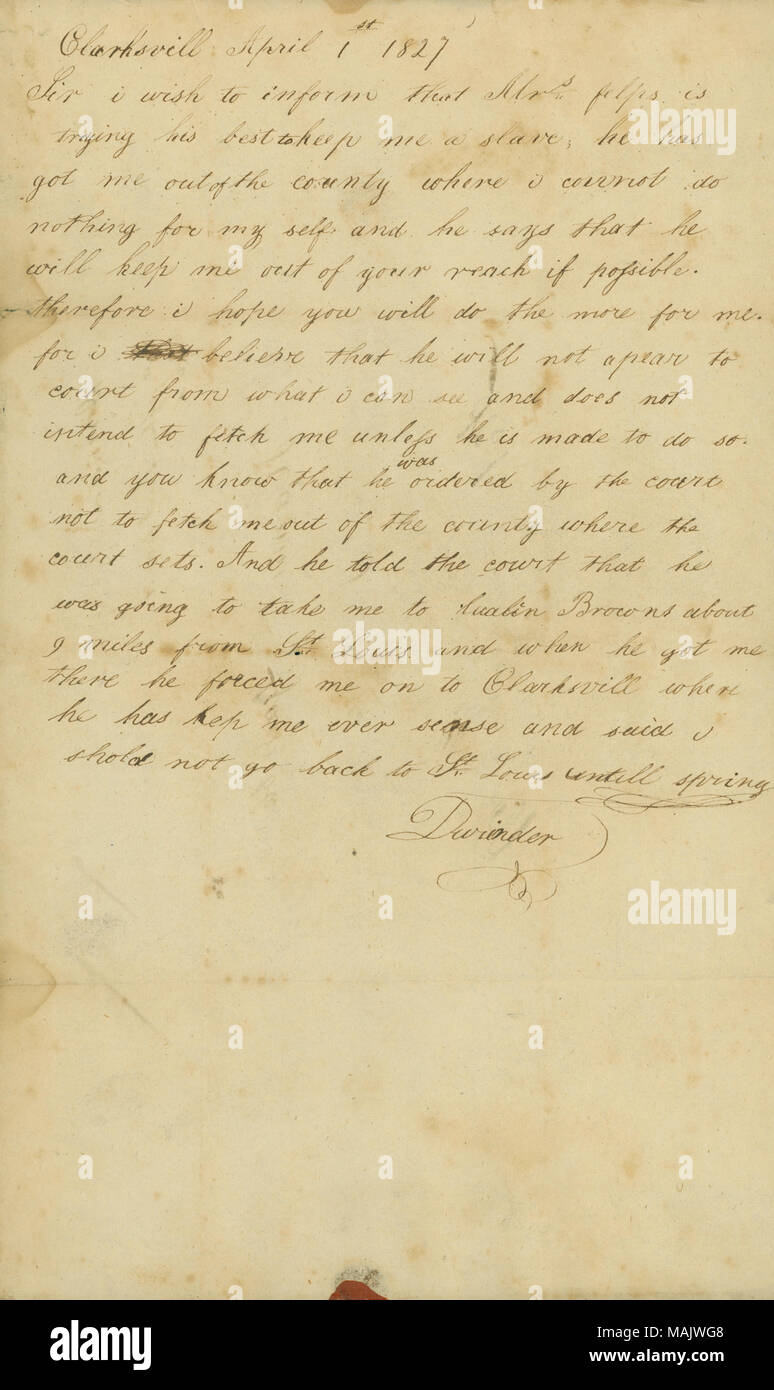 Clarksvill April 1st 1827
Sir i wish to inform that Mrs felps is
trying his best to keep me a slave, he has
got me out of the county where i cannot do
nothing for my self and he says that he
will keep me out of your reach if possible.
therefore i hope you will do the more for me.
for i believe that he will not apear to
court from what i can see and does not
intend to fetch me unless he is made to do so.
and you know that he was ordered by the court
not to fetch me out of the county where the
court sets. And he told the court that he
was going to take me to Browns about
9 miles from St. Louis and when he got me
there he forced me on to Clarksvill where
he has kep me ever sense and said i
shold not go back to St. Louis untill spring
Dwinder
alamy
alamy
a
alamy stock photo
Image ID: MAJWG8
www.alamy.com